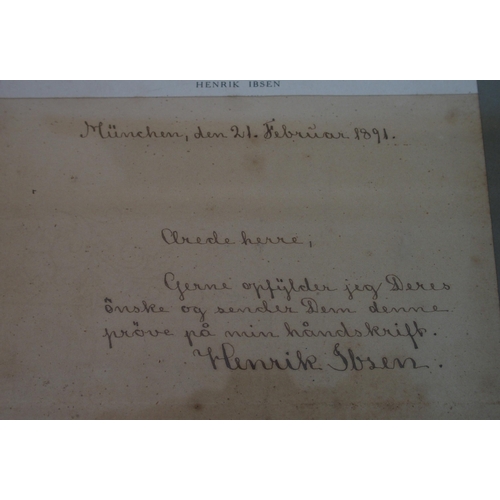 HENRIK IBSEN
München, den 21. Februar 1891.
Ærede herre,
Gerne opfÿlder jeg Deres
önske og sender Dem denne
pröve på min håndskrift.
Henrik Ibsen.